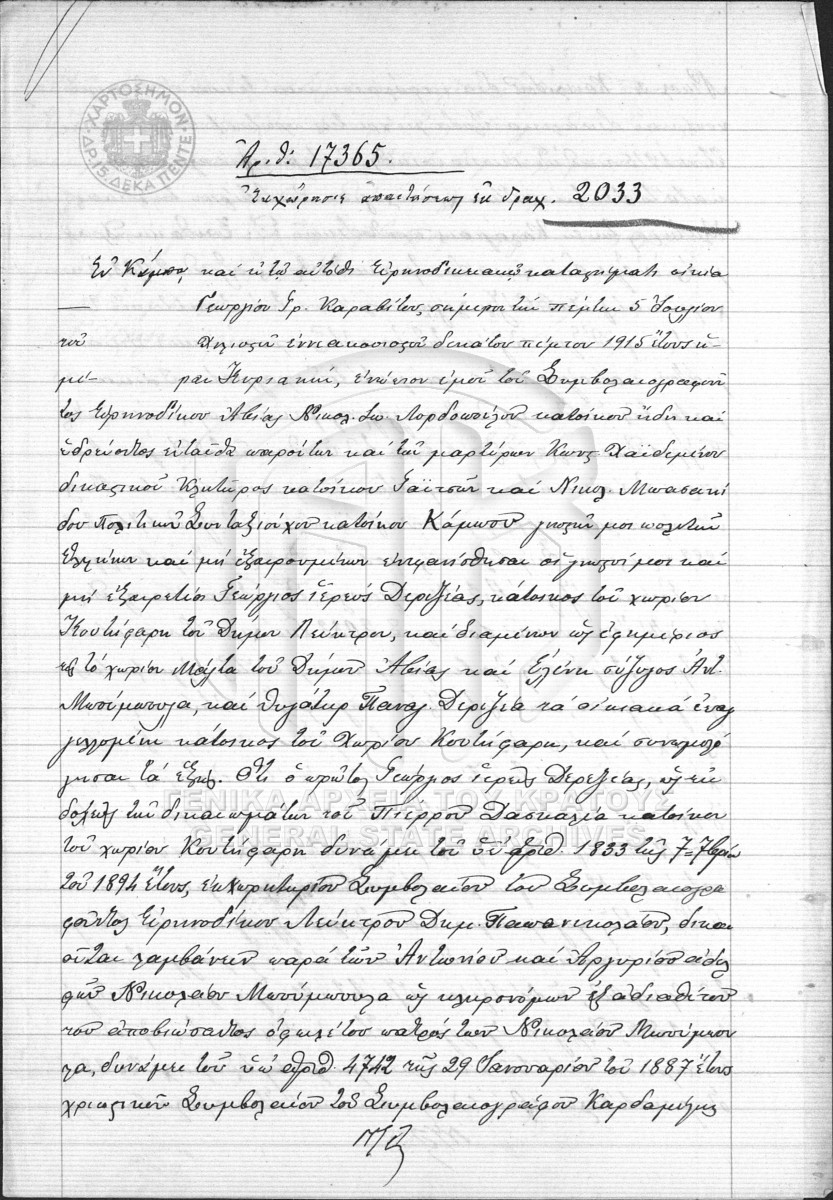 ΧΑΡΤΟΣΗΜΟΝ
ΔΡ. 15 ΔΕΚΑ ΠΕΝΤΕ
Ἀριθ. 17365.
Ἐκχώρησις ἀπαιτήσεως ἐκ δραχ. 2033
Ἐν Κάμπῳ καὶ ἐν τῷ αὐτόθι Εἰρηνοδικειακῷ καταστήματι οἰκία
Γεωργίου Γρ. Καραβίτου, σήμερον τὴν πέμπτην 5 Ἰουλίου
τοῦ χιλιοστοῦ ἐννεακοσιοστοῦ δεκάτου πέμπτου 1915 ἔτους ἡ-
μέ- ραν Κυριακήν, ἐνώπιον ἐμοῦ τοῦ Συμβολαιογραφοῦν
τος Εἰρηνοδίκου Ἀβίας Νικολ. Λορδοπούλου κατοίκου ὧδε καὶ
ἑδρεύοντος ἐνταῦθα παρόντων καὶ τῶν μαρτύρων Κωνς Χαϊδεμένου
δικαστικοῦ Κλητῆρος κατοίκου Γαϊτσῶν καὶ Νικολ. Μπασακί
δου Πολιτικοῦ Συνταξιούχου κατοίκου Κάμπου γνωστῶν μοι πολιτῶν
Ἑλλήνων καὶ μὴ ἐξαιρουμένων ἐνεφανίσθησαν οἱ γνωστοί μοι καὶ
μὴ ἐξαιρετέοι Γεώργιος ἱερεὺς Δερεζέας, κάτοικος τοῦ χωρίου
Κουτήφαρη τοῦ Δήμου Λεύκτρου, καὶ διαμένων ὡς ἐφημέριος
εἰς τὸ χωρίον Μάλτα τοῦ Δήμου Ἀβίας καὶ Ἑλένη σύζυγος Ἀντ.
Μπούμπουλα, καὶ θυγάτηρ Παναγ. Δερεζέα τὰ οἰκιακὰ ἐπαγ
γελλομένη κάτοικος τοῦ Χωρίου Κουτήφαρη, καὶ συνωμολό
γησαν τὰ ἑξῆς. Ὅτι ὁ πρῶτος Γεώργιος ἱερεὺς Δερεζέας, ὡς ἐκ
δοχεὺς τῶν δικαιωμάτων τοῦ Πιέρρου Δασκαλέα κατοίκου
τοῦ χωρίου Κουτήφαρη δυνάμει τοῦ ὑπ' ἀριθ. 1833 τῆς 7 7βρίου
τοῦ 1894 ἔτους, ἐκχωρητηρίου Συμβολαίου τοῦ Συμβολαιογρα
φοῦντος Εἰρηνοδίκου Λεύκτρου Δημ. Παπανικολάου, δικαι
οῦται λαμβάνειν παρὰ τῶν Ἀντωνίου καὶ Ἀργυρίου ἀδελ
φῶν Νικολάου Μπούμπουλα ὡς κληρονόμων ἐξ ἀδιαθέτου
τοῦ ἀποβιώσαντος ὀφειλέτου πατρός των Νικολάου Μπούμπου
λα, δυνάμει τοῦ ὑπ' ἀριθ. 4742 τῆς 29 Ἰανουαρίου τοῦ 1887 ἔτους
χρεωστικοῦ Συμβολαίου τοῦ Συμβολαιογράφου Καρδαμύλης
ΓΕΝΙΚΑ ΑΡΧΕΙΑ ΤΟΥ ΚΡΑΤΟΥΣ
GENERAL STATE ARCHIVES